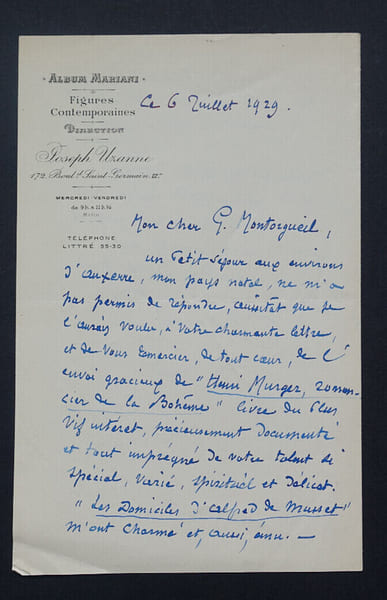 ALBUM MARIANI
Figures
Contemporaines
DIRECTION
Joseph Uzanne
172, Boul.d Saint-Germain.
MERCREDI VENDREDI
de 9h. à 11h.½
Matin
TÉLÉPHONE
LITTRÉ 55-30
Ce 6 Juillet 1929.
Mon cher G. Montorgueil,
un petit séjour aux environs
d'Auxerre, mon pays natal, ne m'a
pas permis de répondre, aussitôt que je
l'aurais voulu, à votre charmante lettre,
et de vous remercier, de tout cœur, de l'
envoi gracieux de "Henri Murger, roman-
cier de la Bohême" livre du plus
vif intérêt, précieusement documenté
et tout imprégné de votre talent si
spécial, varié, spirituel et délicat.
"Les Domiciles d'Alfred de Musset"
m'ont charmé et, aussi, ému. —